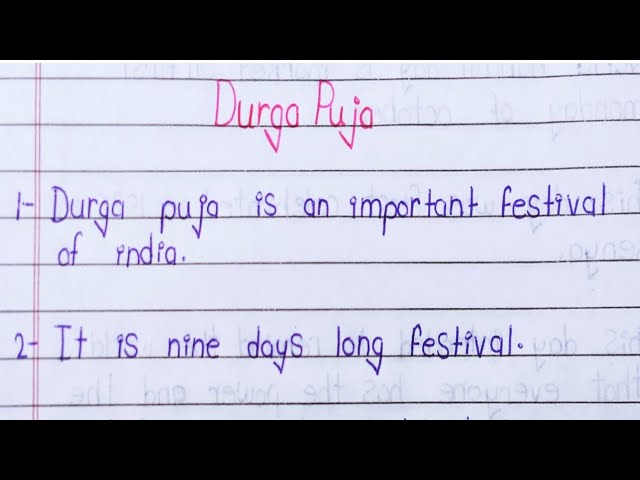 Durga Puja
1- Durga puja is an important festival
of india.
2- It is nine days long festival.